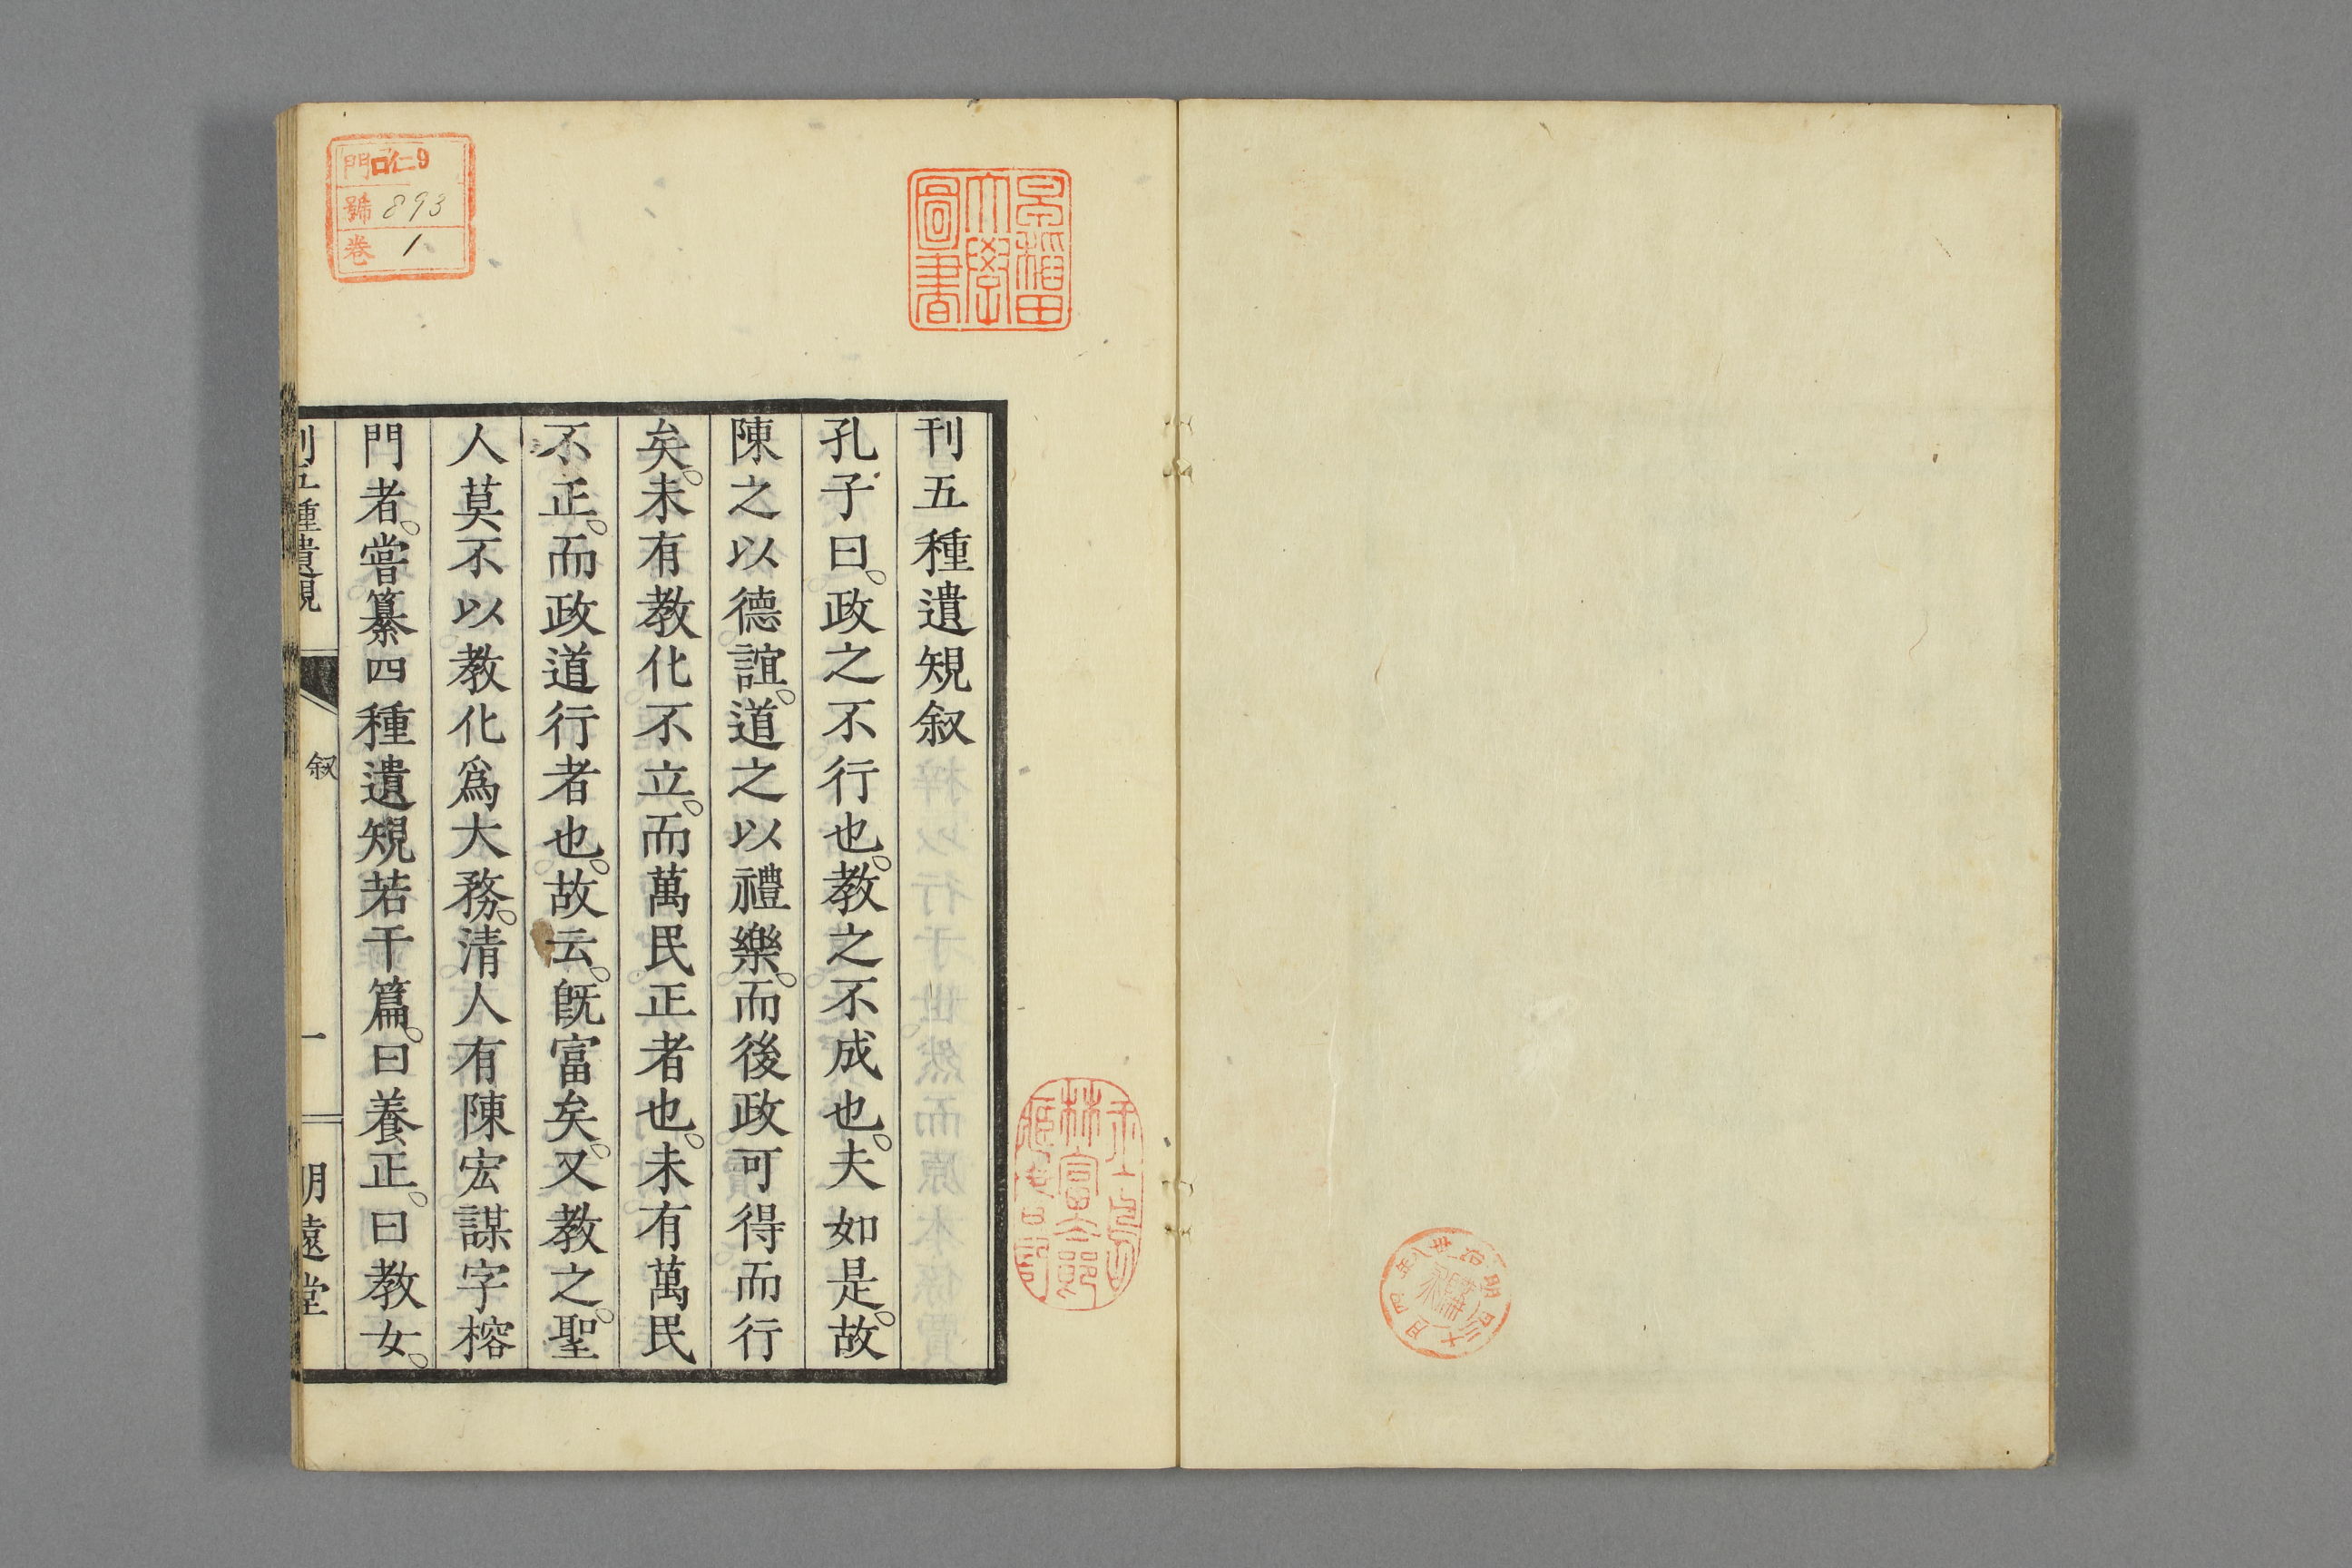 刊五種遺規叙
孔子曰。政之不行也。教之不成也。夫如是。故
陳之以德誼。道之以禮樂。而後政可得而行
矣。未有教化不立。而萬民正者也。未有萬民
不正。而政道行者也。故云。既富矣。又教之。聖
人莫不以教化爲大務。清人有陳宏謀字榕
門者。嘗纂四種遺規若干篇。曰養正。曰教女。
刊五種遺規
叙
一
明遠堂
早稻田
大學
圖書
門 ロ仁9
號 893
卷 1